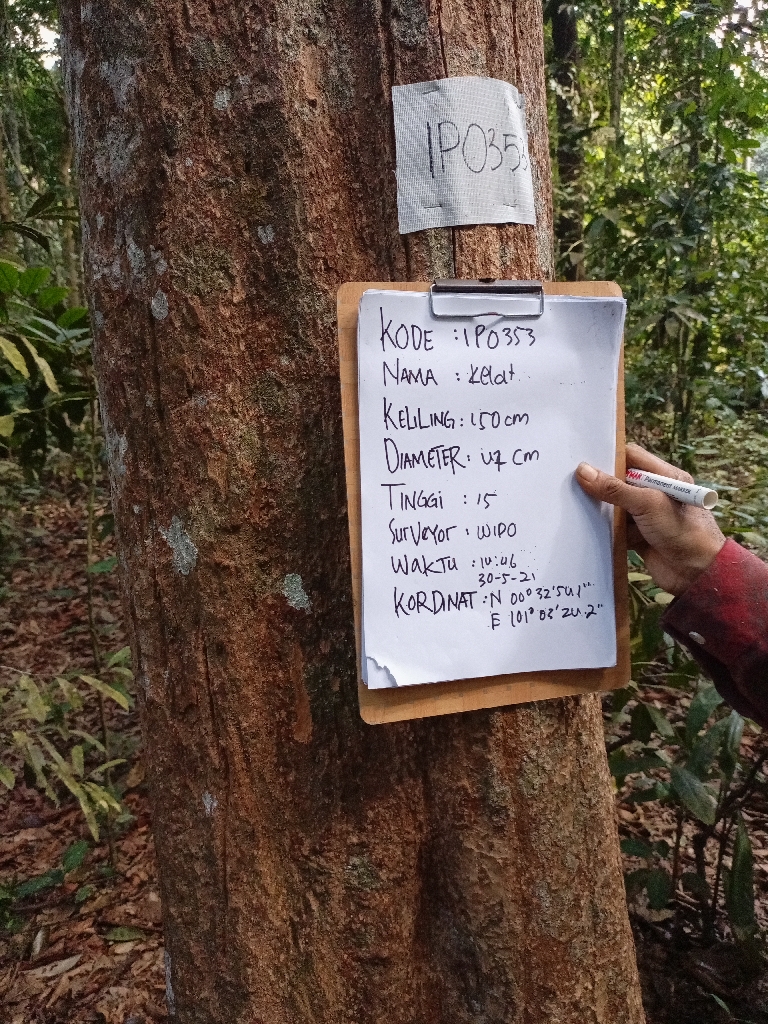 IP0353
KODE : IP0353
NAMA : Kelat
KELILING : 150 cm
DIAMETER : 47 cm
TINGGI : 15
SURVEYOR : WIPO
WAKTU : 14:46
30-5-21
KORDINAT : N 00° 32'54.1"
E 101° 03'24.2"
PERMANENT MARKER